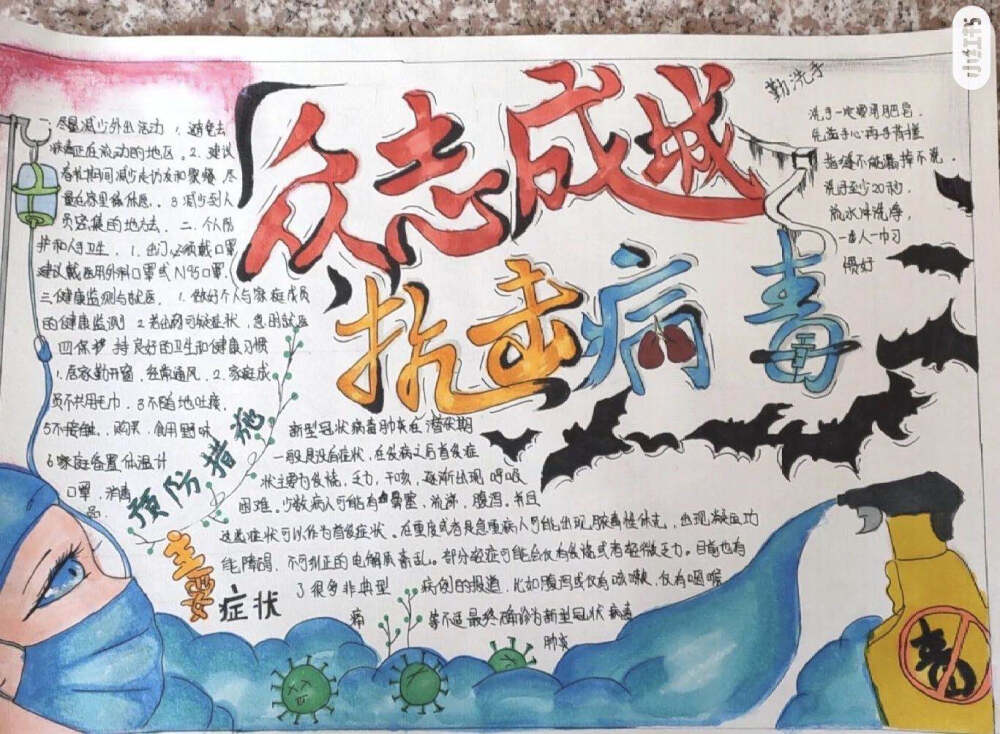 小红书
众志成城
抗击病毒
勤洗手
洗手一定要用肥皂，
先造手心再手背搓
指缝不能漏掉不洗，
洗手至少20秒，
流水冲洗净，
一人一巾习
惯好
一尽量减少外出活动 1、避免去
正在流动的地区。2、建议
春节期间减少走访友和聚餐，尽
量在家里休息。3 减少到人
员密集的地方去。二、个人防
护和人手卫生，1、出门必须戴口罩
建议戴医用外科口罩或N95口罩。
三健康监测与就医，1、做好个人与家庭成员
的健康监测 2 若出现可疑症状，急用就医
四保护 持良好的卫生和健康习惯
1、居家勤开窗，经常通风，2、家庭成
员不共用毛巾，3不随地吐痰，
5不接触、购买、食用野味
6家庭备置体温计
口罩，消毒
品．
预防措施
新型冠状病毒肺炎在潜伏期
一般是没有症状，在发病之后首发症
状主要为发烧，乏力，干咳，逐渐出现呼吸
困难。少数病人可能有鼻塞，流涕，腹泻，并且
这些症状可以作为首发症状。在重度或者是急重病人可能出现脓毒性休克，出现凝血功
能障碍，不可纠正的电解质紊乱。部分轻症可能会仅有发烧或者轻微乏力。目前也有
了很多非典型 病例的报道，比如腹泻或仅有咳嗽，仅有咽喉
痛 等不适最终确诊为新型冠状病毒
肺炎
主要
症状
毒